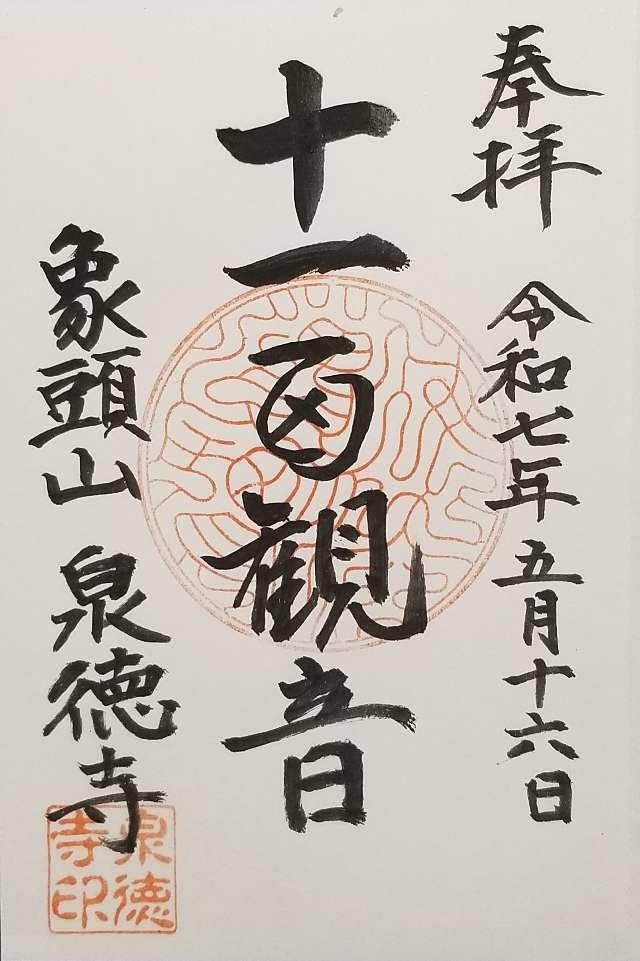 奉拝
令和七年五月十六日
十一面観音
象頭山 泉徳寺
泉徳寺印